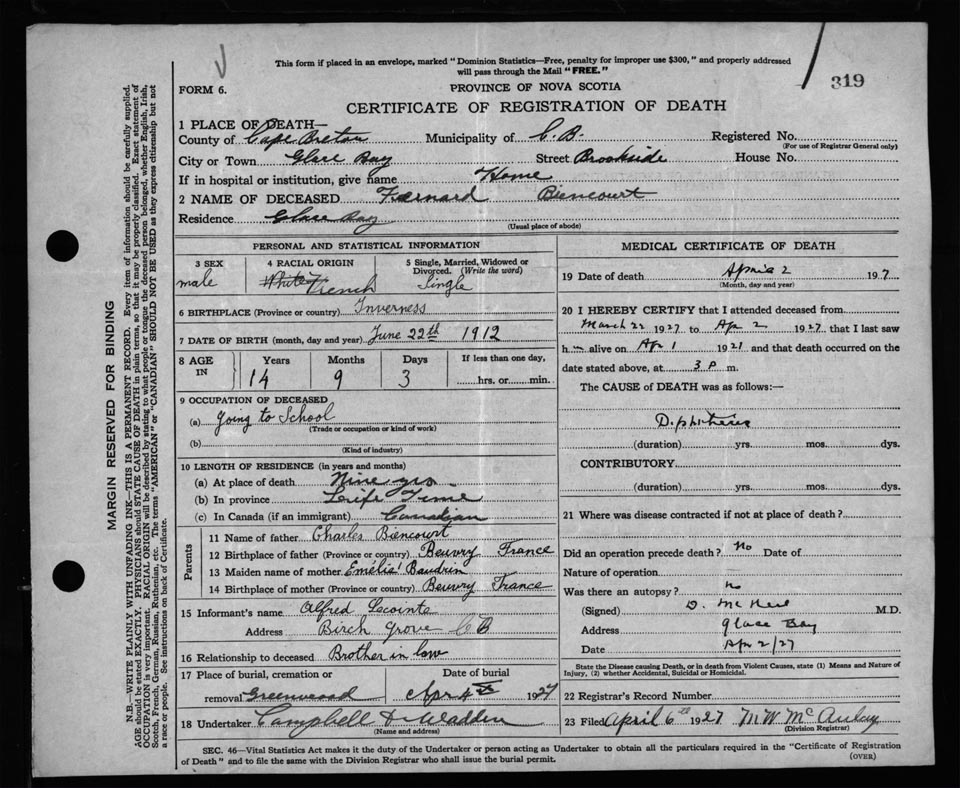 This form if placed in an envelope, marked "Dominion Statistics—Free, penalty for improper use $300," and properly addressed
will pass through the Mail "FREE."
319
FORM 6.
PROVINCE OF NOVA SCOTIA
CERTIFICATE OF REGISTRATION OF DEATH
MARGIN RESERVED FOR BINDING
N.B.—WRITE PLAINLY WITH UNFADING INK—THIS IS A PERMANENT RECORD. Every item of information should be carefully supplied.
AGE should be stated EXACTLY. PHYSICIANS should STATE CAUSE OF DEATH in plain terms, so that it may be properly classified. Exact statement of
OCCUPATION is very important. RACIAL ORIGIN will be described by stating to what people or tongue the deceased person belonged, whether English, Irish,
Scotch, French, German, Russian, Ruthenian, etc. The terms "AMERICAN" or "CANADIAN" SHOULD NOT BE USED as they express citizenship but not
a race or people. See instructions on back of Certificate.
1 PLACE OF DEATH—
County of Cape Breton Municipality of C.B. Registered No.
(For use of Registrar General only)
City or Town Glace Bay Street Brookside House No.
If in hospital or institution, give name Home
2 NAME OF DECEASED Fernard Biencourt
Residence Glace Bay
(Usual place of abode)
PERSONAL AND STATISTICAL INFORMATION
3 SEX 4 RACIAL ORIGIN 5 Single, Married, Widowed or
Divorced. (Write the word)
male White French Single
6 BIRTHPLACE (Province or country) Inverness
7 DATE OF BIRTH (month, day and year) June 22th 1912
8 AGE IN Years Months Days If less than one day,
14 9 3 hrs. or min.
9 OCCUPATION OF DECEASED
(a) Going to School
(Trade or occupation or kind of work)
(b)
(Kind of industry)
10 LENGTH OF RESIDENCE (in years and months)
(a) At place of death Nine yrs
(b) In province Leife Time
(c) In Canada (if an immigrant) Canadian
Parents
11 Name of father Charles Biencourt
12 Birthplace of father (Province or country) Beuvry France
13 Maiden name of mother Emélie Baudrin
14 Birthplace of mother (Province or country) Beuvry France
15 Informant's name Alfred Lecointe
Address Birch Grove CB
16 Relationship to deceased Brother in law
17 Place of burial, cremation or Date of burial
removal Greenwood Apr 4th 1927
18 Undertaker Campbell & Wadden
(Name and address)
MEDICAL CERTIFICATE OF DEATH
19 Date of death April 2 1927
(Month, day and year)
20 I HEREBY CERTIFY that I attended deceased from
March 22 1927 to Ap 2 1927 that I last saw
h im alive on Ap 1 1921 and that death occurred on the
date stated above, at 3 P m.
The CAUSE of DEATH was as follows:—
Diphtheria
(duration) yrs. mos. dys.
CONTRIBUTORY
(duration) yrs. mos. dys.
21 Where was disease contracted if not at place of death?
Did an operation precede death? No Date of
Nature of operation
Was there an autopsy? no
(Signed) D. McNeil M.D.
Address Glace Bay
Date Ap 2/27
State the Disease causing Death, or in death from Violent Causes, state (1) Means and Nature of
Injury, (2) whether Accidental, Suicidal or Homicidal.
22 Registrar's Record Number
23 Filed April 6th 1927 M W McAulay
(Division Registrar)
SEC. 46—Vital Statistics Act makes it the duty of the Undertaker or person acting as Undertaker to obtain all the particulars required in the "Certificate of Registration
of Death" and to file the same with the Division Registrar who shall issue the burial permit.
(OVER)